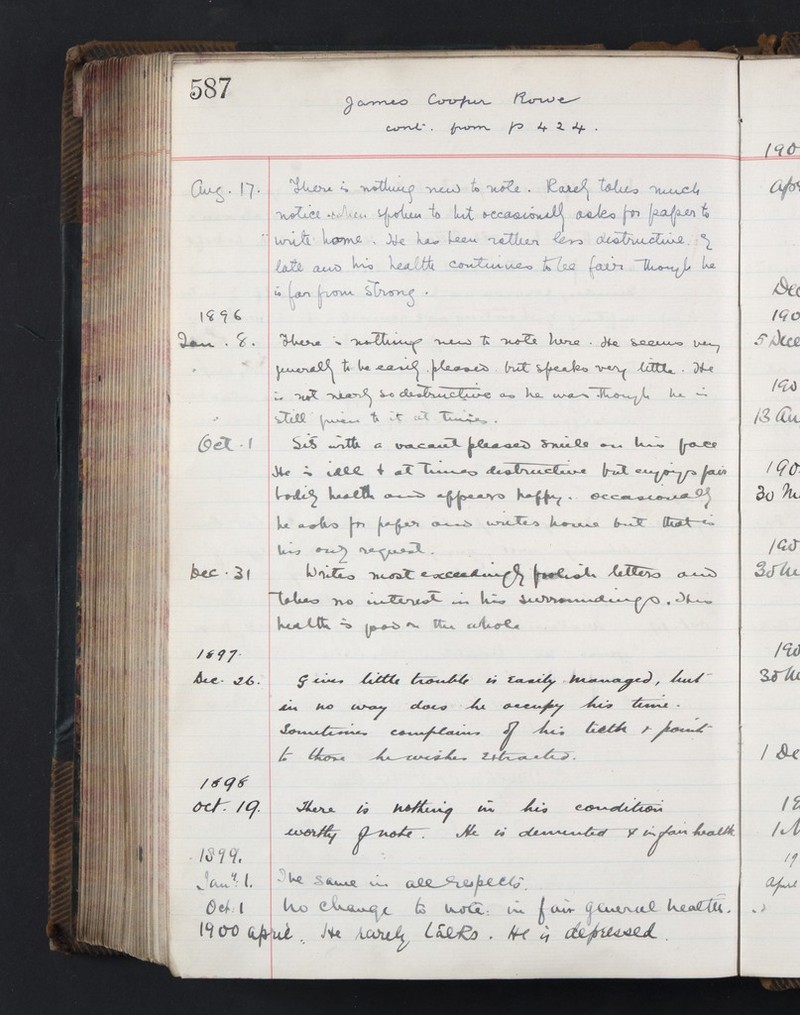 587
James Cooper Rowe
cont. from p 424.
Aug. 17. There is nothing new to note. Rarely takes much
notice when spoken to but occasionally asks for paper to
write home. He has been rather less destructive of
late and his health continues to be fair though he
is far from strong.
1896
Jan. 8. There is nothing new to note here. He seems very
generally to be easily pleased but speaks very little. He
is not nearly so destructive as he was though he is
still given to it at times.
Oct. 1 Sits with a vacant pleased smile on his face
He is idle & at times destructive but enjoys fair
bodily health and appears happy. occasionally
he asks for paper and writes home but that is
his only request.
Dec. 31 Writes most exceedingly foolish letters and
takes no interest in his surroundings. His
health is good on the whole
1897.
Dec. 26. Gives little trouble is easily managed, but
in no way does he occupy his time.
Sometimes complains of his teeth & points
to those he wishes extracted.
1898
Oct. 19. There is nothing in his condition
worthy of note. He is demented & in fair health
1899.
Jany. 1. The same in all respects.
Oct. 1 No change to note. in fair general health.
1900 april. He rarely talks. He is depressed.
190
Apr
Dec
190
5 Dece
190
13 Au
190
30 M
190
190
1 De
19